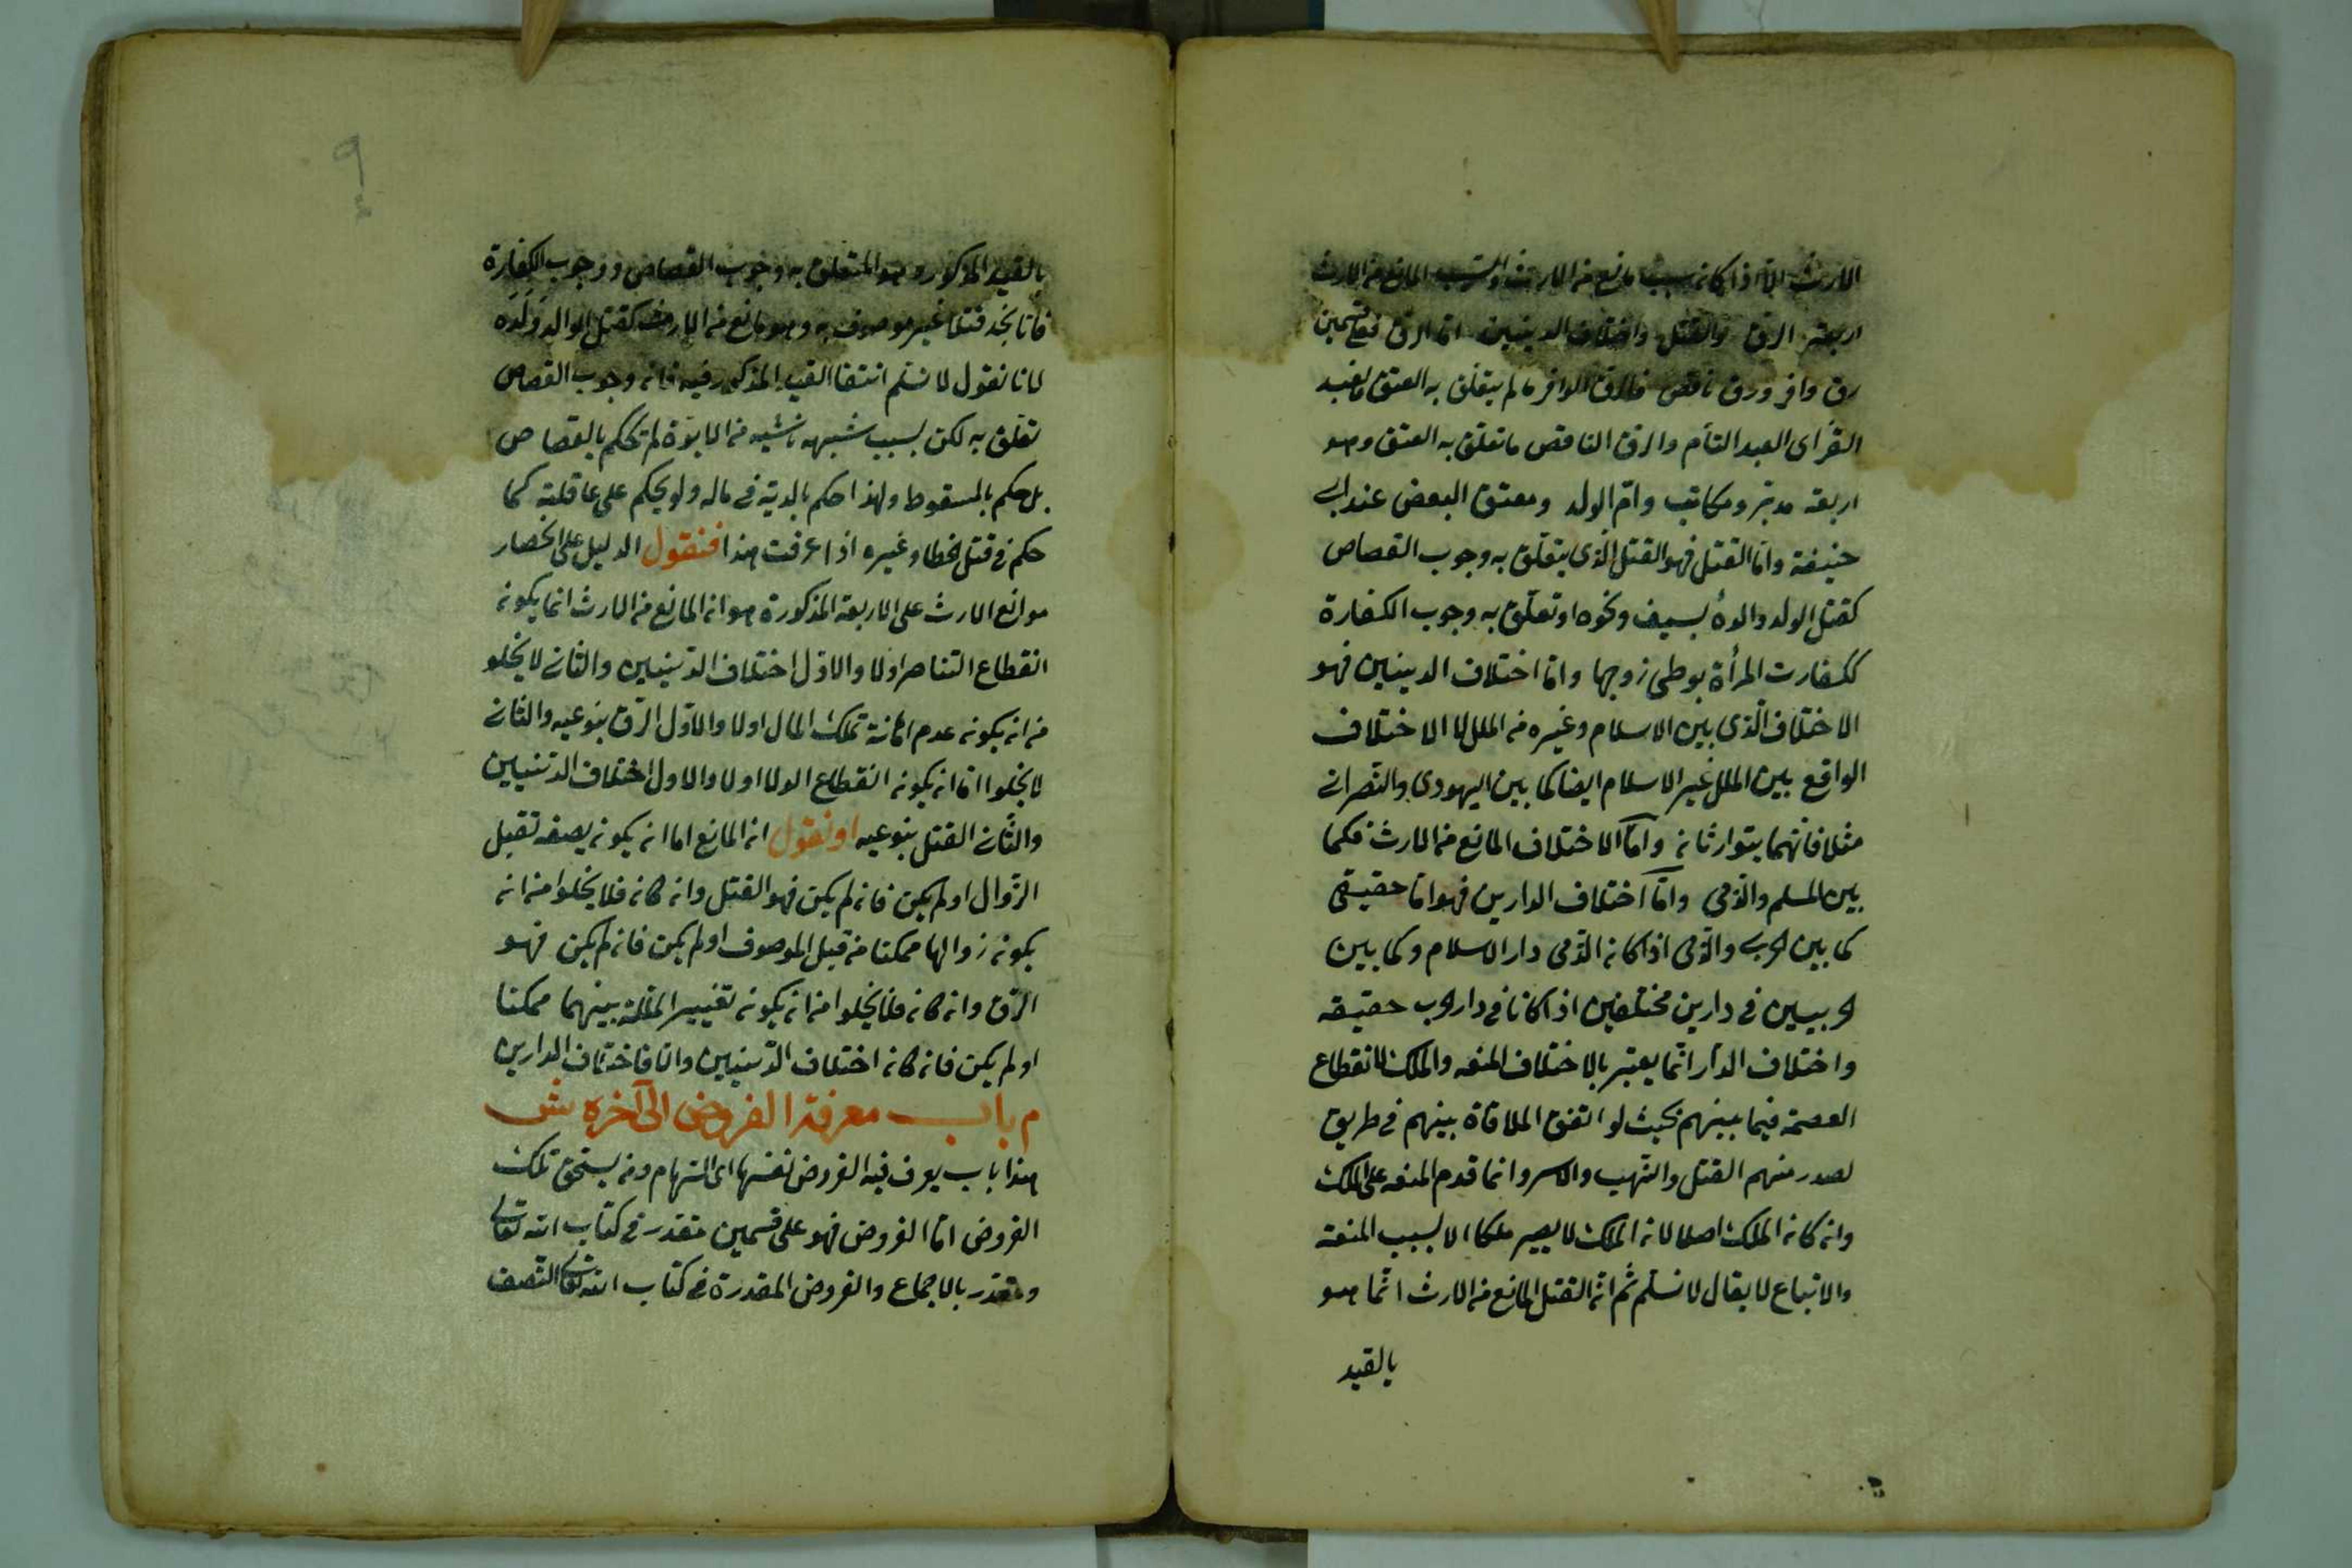 الارث الا اذا كان سبب مانع من الارث والسبب المانع من الارث
اربعة الرق والقتل واختلاف الدينين اما الرق فعلى قسمين
رق وافر ورق ناقص فالرق الوافر ما لم يتعلق به العتق كالعبد
القن اى العبد التام والرق الناقص ما تعلق به العتق وهو
اربعة مدبر ومكاتب وام الولد ومعتق البعض عند ابى
حنيفة واما القتل فهو القتل الذى يتعلق به وجوب القصاص
كقتل الولد والده بسيف ونحوه او تعلق به وجوب الكفارة
ككفارت المرأة بوطى زوجها واما اختلاف الدينين فهو
الاختلاف الذى بين الاسلام وغيره من الملل لا الاختلاف
الواقع بين الملل غير الاسلام ايضا كما بين اليهودى والنصرانى
مثلا فانهما يتوارثان واما الاختلاف المانع من الارث فكما
بين المسلم والذمى واما اختلاف الدارين فهو اما حقيقى
كما بين الحربى والذمى اذا كان الذمى دار الاسلام وكما بين
الحربيين فى دارين مختلفين اذا كانا فى دار الحرب حقيقه
واختلاف الدار انما يعتبر بالاختلاف المنعه والملك لانقطاع
العصمة فيما بينهم بحيث لو اتفق الملاقاة بينهم فى طريق
لصدر منهم القتل والنهب والاسر وانما قدم المنعه على الملك
وان كان الملك اصلا لان الملك لا يصير ملكا الا بسبب المنعة
والاتباع لا يقال لا نسلم ثم ان القتل المانع من الارث انما هو
بالقيد
٩
بالقيد المذكور وهو المتعلق به وجوب القصاص ووجوب الكفارة
فانا نجد قتلا غير موصوف به وهو مانع من الارث كقتل الوالد ولده
لانا نقول لا نسلم انتفا القيد المذكور فيه فان وجوب القصاص
تعلق به لكن بسبب شبهه ناشيه من الابوة لم تحكم بالقصاص
بل حكم بالسقوط ولهذا حكم بالدية فى ماله ولو يحكم على عاقلته كما
حكم فى قتل الخطا وغيره اذا عرفت هذا فنقول الدليل على انحصار
موانع الارث على الاربعة المذكورة هو ان المانع من الارث انما يكون
انقطاع التناصر اولا والاول اختلاف الدينين والثانى لا يخلو
من ان يكون عدم تملك المال اولا والاول الرق بنوعيه والثانى
لا يخلوا اما ان يكون انقطاع الولا اولا والاول اختلاف الدينيين
والثانى القتل بنوعيه او نقول ان المانع اما ان يكون بصفه تقبل
الزوال او لم يكن فان لم يكن فهو القتل وان كان فلا يخلوا من ان
يكون زوالها ممكنا من قبل الموصوف او لم يكن فان لم يكن فهو
الرق وان كان فلا يخلوا من ان يكون تغيير بينهما ممكنا
او لم يكن فان كان اختلاف الدينيين والا فاختلاف الدارين
م باب معرفة الفروض الى آخره ش
هذا باب يعرف فيه الفروض نفسها اى السهام ومن يستحق تلك
الفروض اما الفروض فهو على قسمين مقدر فى كتاب الله تعالى
ومقدر بالاجماع والفروض المقدرة فى كتاب الله تعالى النصف